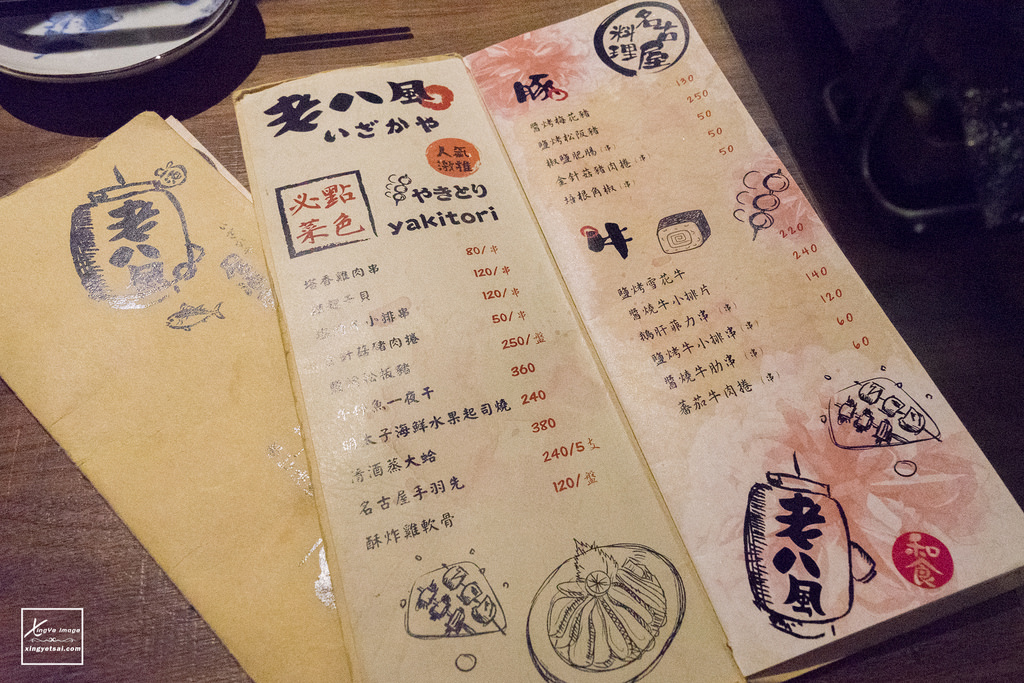 老八風
老八風
いざかや
人氣
激推
必點
菜色
やきとり
yakitori
塔香雞肉串 80/串
干貝 120/串
小排串 120/串
針菇豬肉捲 50/串
松阪豬 250/盤
魚一夜干 360
太子海鮮水果起司燒 240
清酒蒸大蛤 380
名古屋手羽先 240/5支
酥炸雞軟骨 120/盤
名古屋
料理
豚
醬烤梅花豬 130
鹽烤松阪豬 250
椒鹽肥腸(串) 50
金針菇豬肉捲(串) 50
培根角椒(串) 50
牛
鹽烤雪花牛 220
醬燒牛小排片 240
鵝肝菲力串(串) 140
鹽烤牛小排串(串) 120
醬燒牛肋串(串) 60
蕃茄牛肉捲(串) 60
老八風
和食
XingYe image
xingyetsai.com